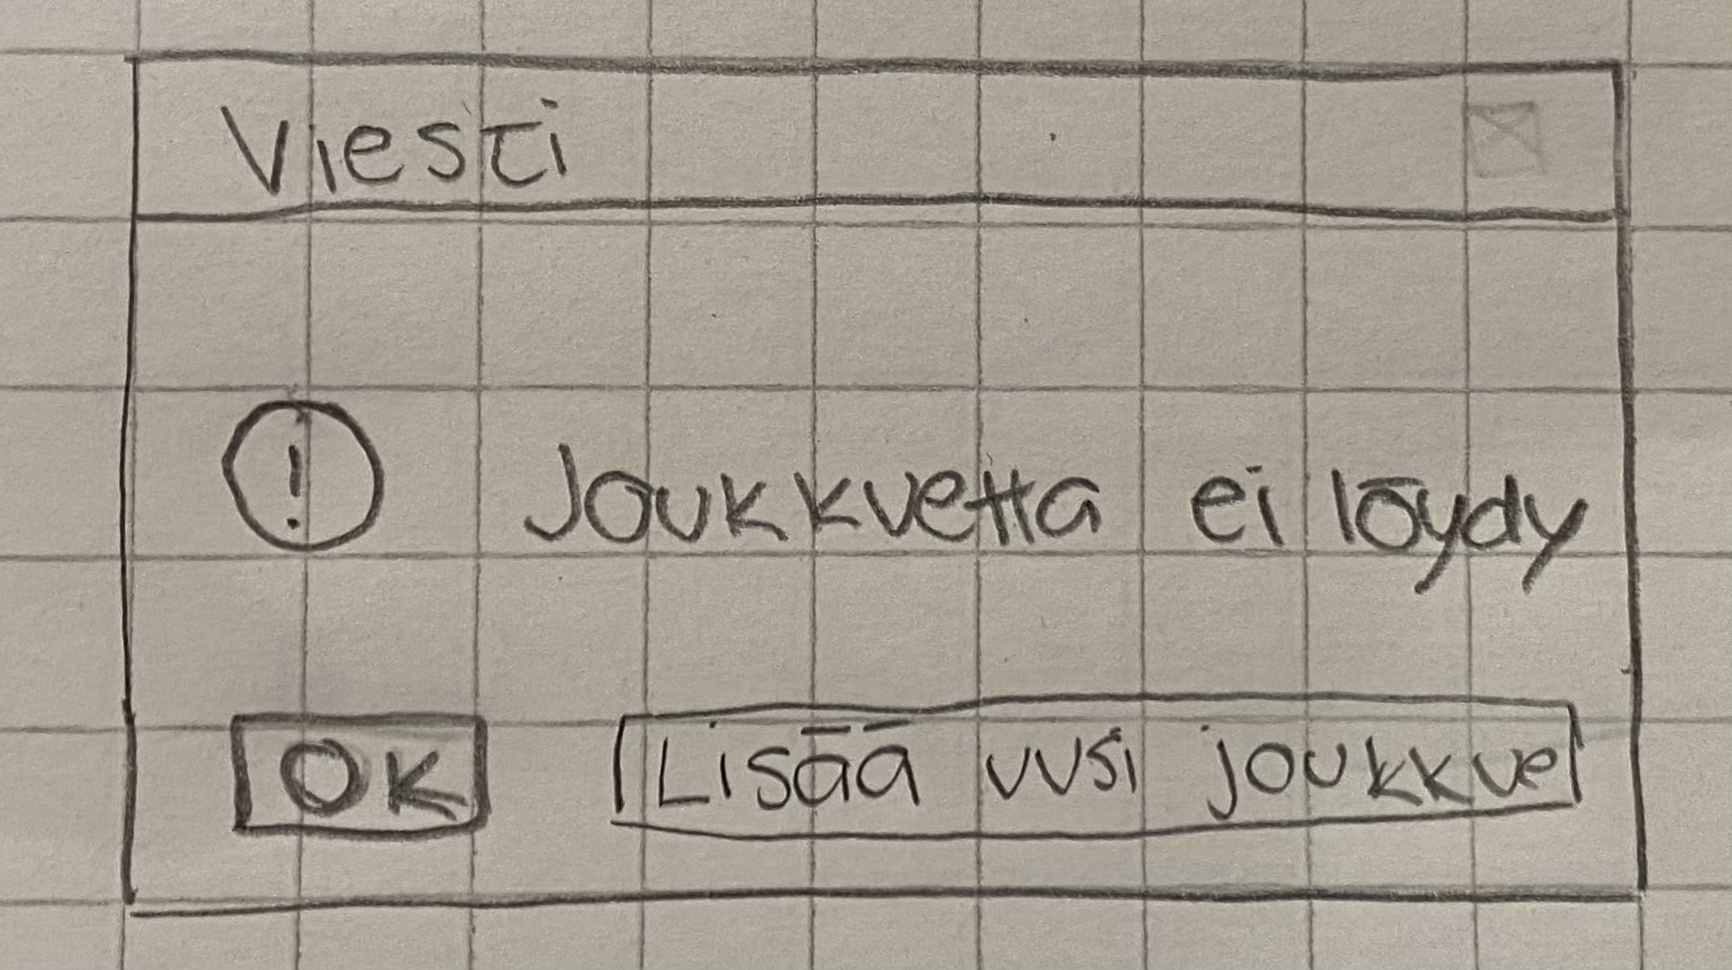 Viesti
! Joukkuetta ei löydy
OK Lisää uusi joukkue